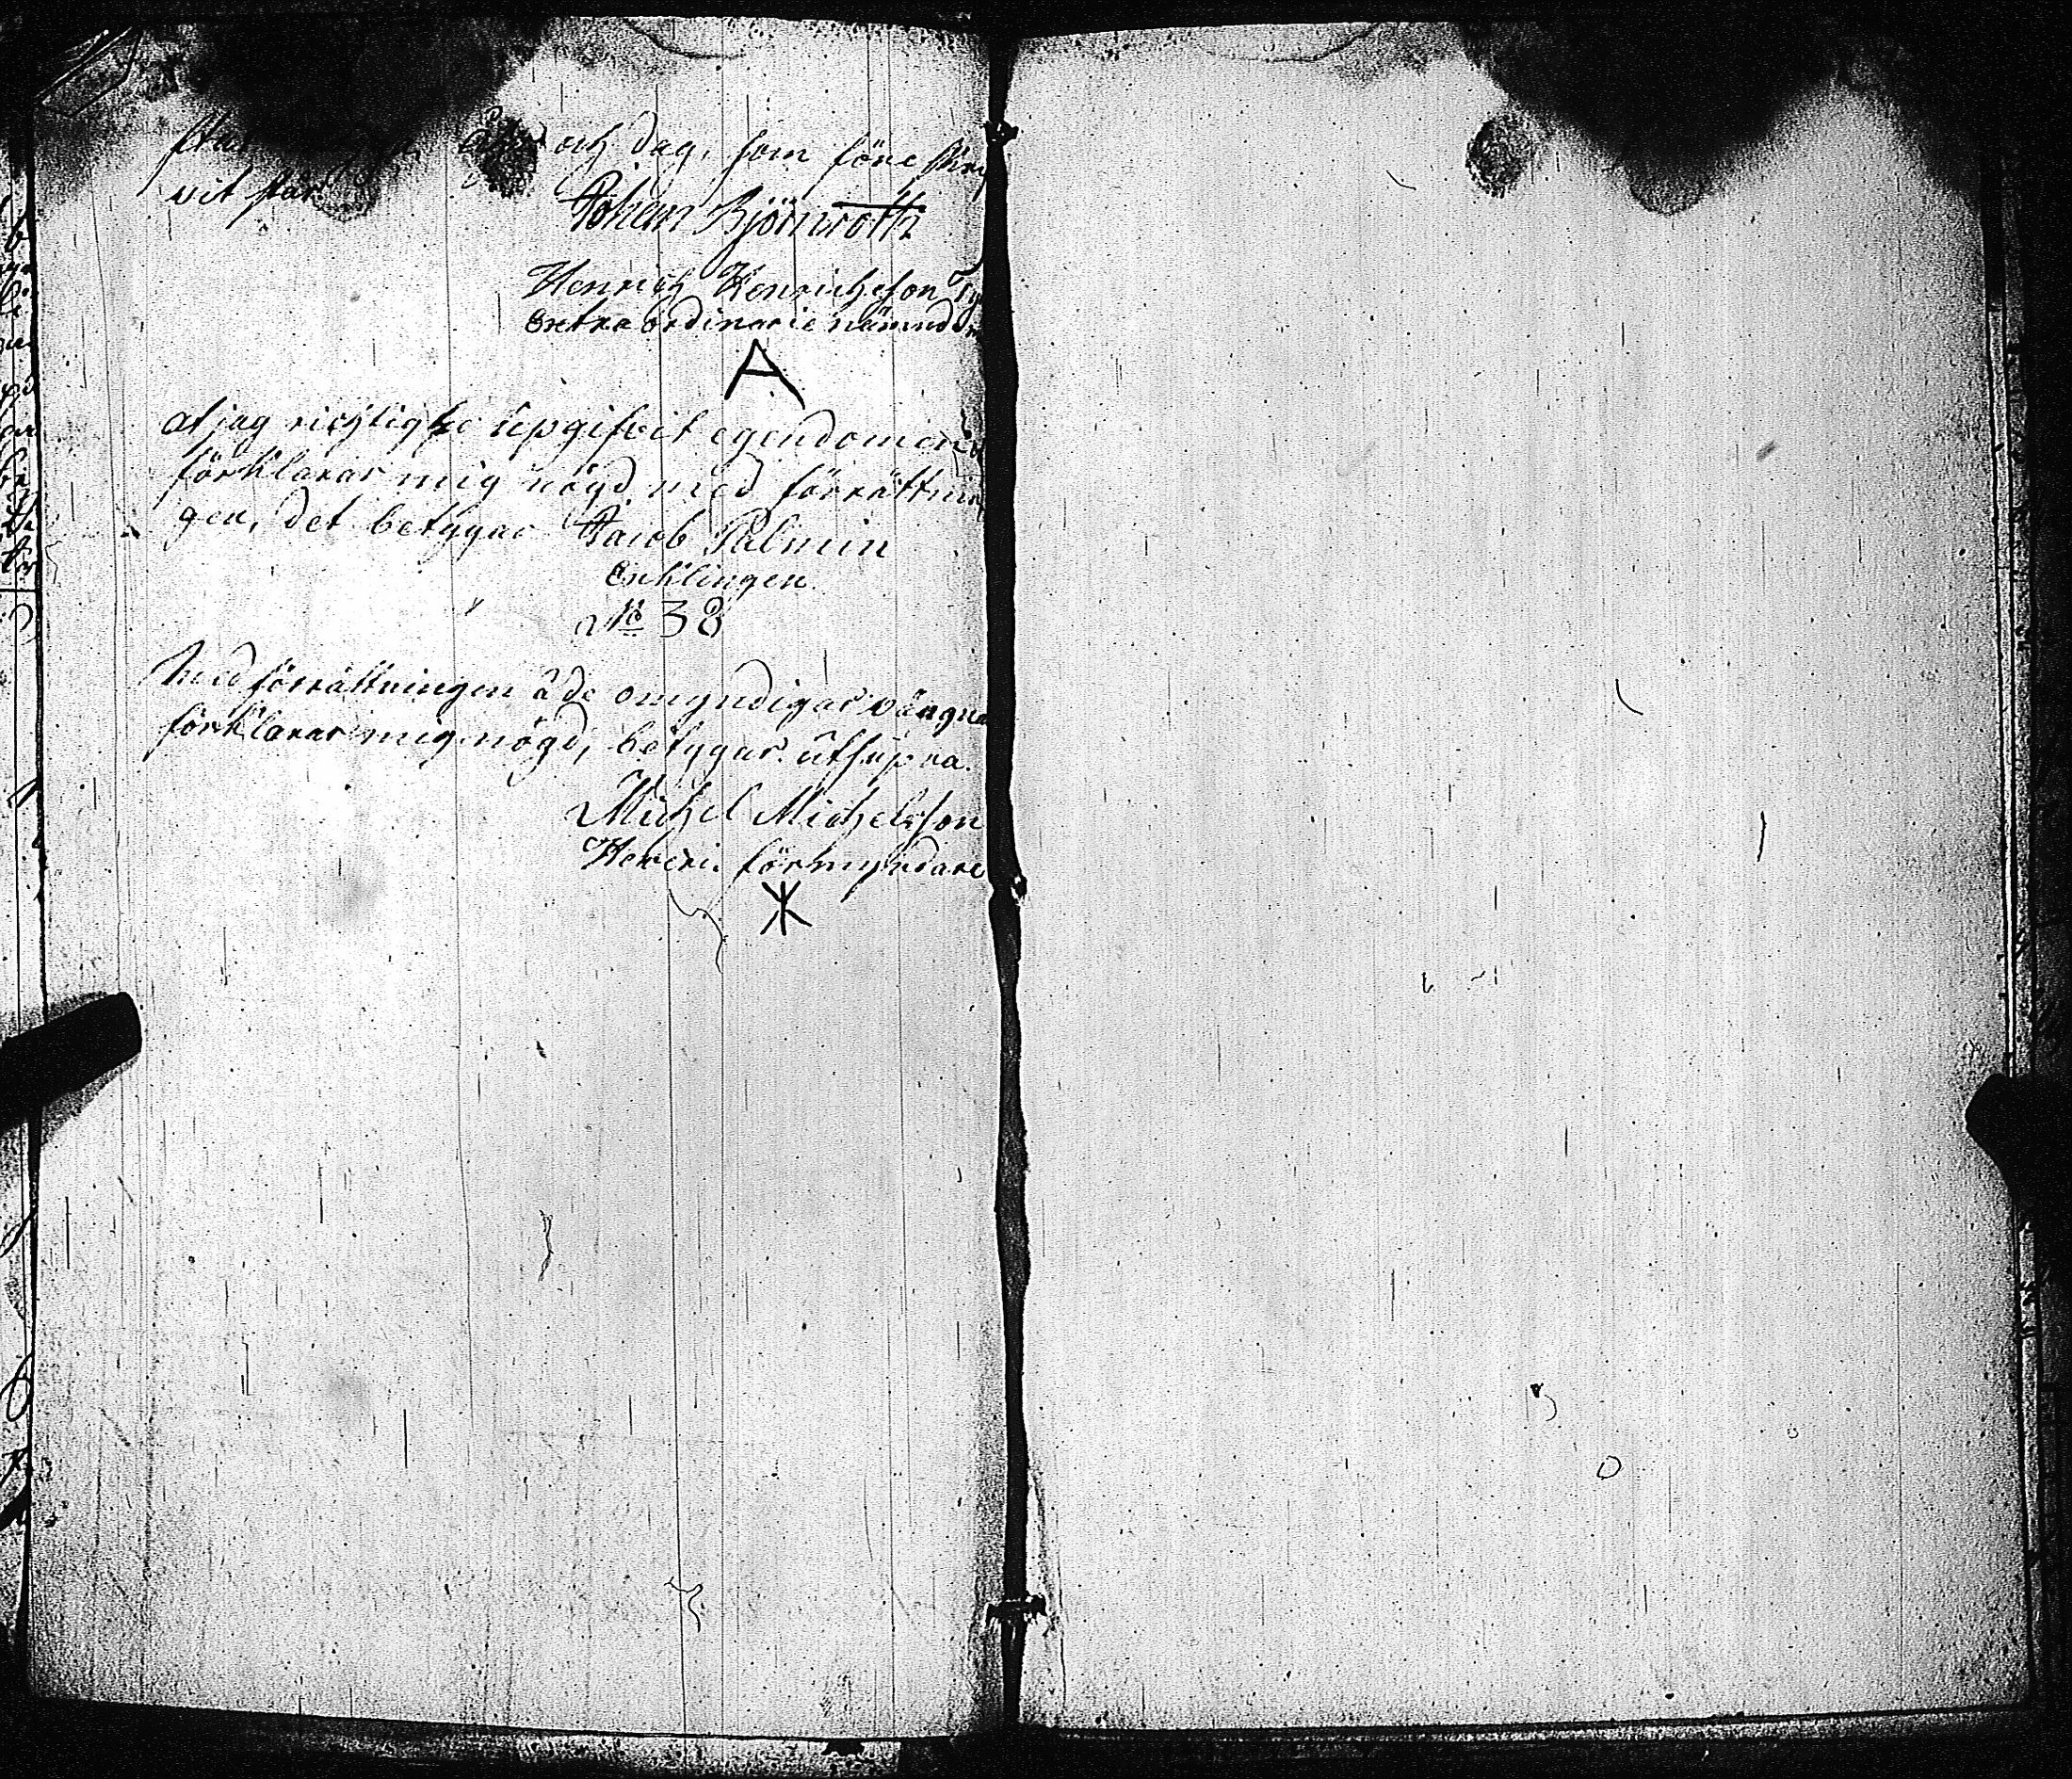 och dag, som före skre
vit står
Johan Björnroth
Henrich Henrichsson
Extra ordinarie nämnd
A
at jag richtight upgifvit egendomen
förklarar mig nögd med förrättnin
gen, det betygar Jacob Palmin
Encklingen
No 38
Med förrättningen å de omyndigas vängna
förklarar mig nögd, betygar ut supra
Michel Michelsson
förmyndare